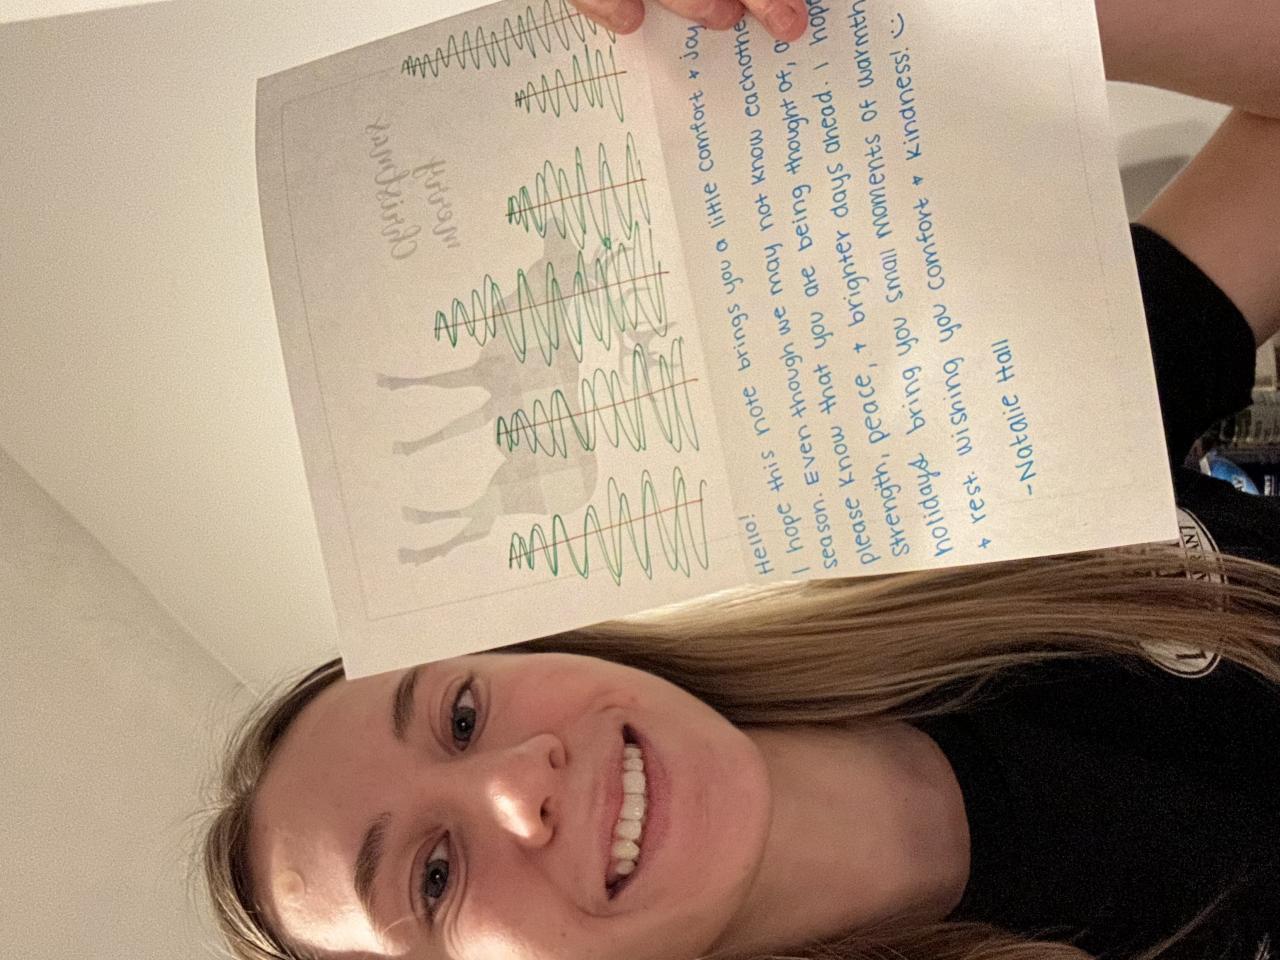 merry
christmas
Hello!
I hope this note brings you a little comfort + joy
season. Even though we may not know eachothe
please know that you are being thought of,
strength, peace, + brighter days ahead. I hope
holidays bring you small moments of warmth
+ rest. Wishing you comfort + kindness! :)
-Natalie Hall